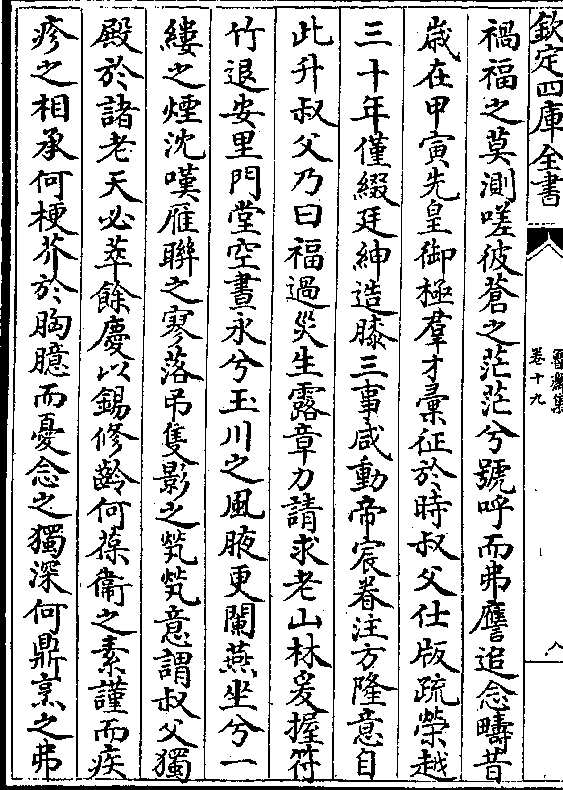 欽定四庫全書
卷十九
八
禍福之莫測嗟彼蒼之茫茫兮號呼而弗譍追念疇昔
嵗在甲寅先皇御極羣才彚征於時叔父仕版疏榮越
三十年僅綴廷紳造膝三事咸動帝宸眷注方隆意自
此升叔父乃曰福過災生露章力請求老山林爰握符
竹退安里門堂空晝永兮玉川之風腋更闌燕坐兮一
縷之煙沈嘆雁聨之寥落吊隻影之煢煢意謂叔父獨
殿於諸老天必萃餘慶以錫修齡何葆衞之素謹而疾
疹之相承何梗芥於胸臆而憂念之獨深何鼎烹之弗